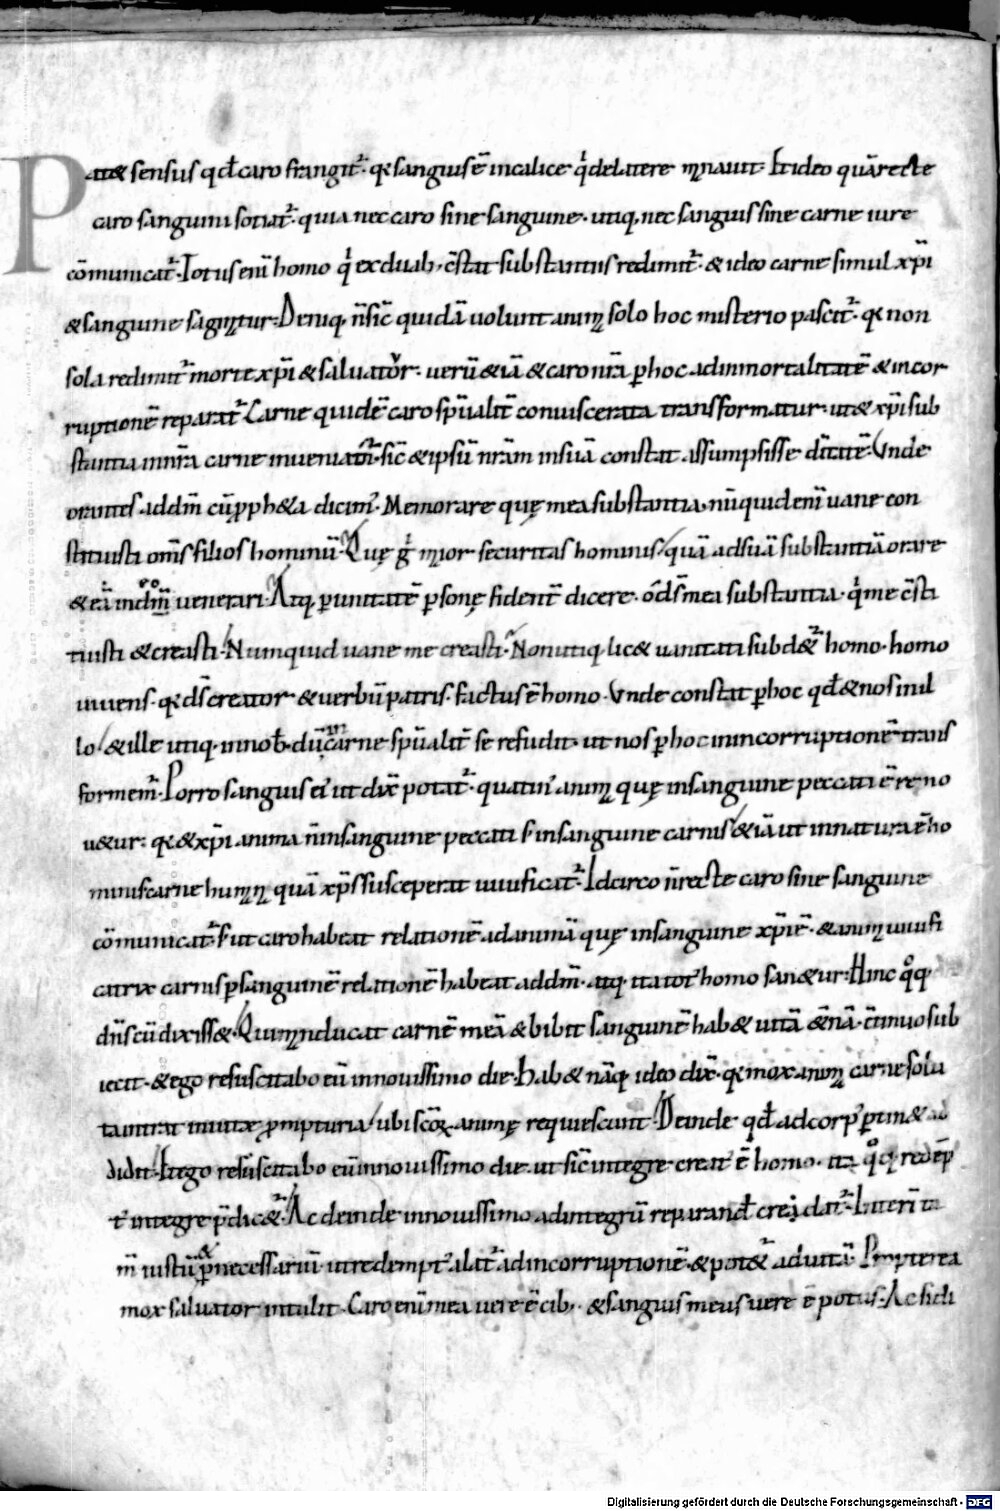 Patet sensus qđ caro frangit᷑. q; sanguis ē in calice q̓ de latere manauit. Et ideo quā recte
caro sanguini sotiat᷑. quia nec caro sine sanguine. utiq; nec sanguis sine carne iure
cōmunicat᷑. Totus eni homo q̓ ex duab; c̄stat substantiis redimit᷑. & ideo carne simul xp̄i
& sanguine saginatur. Deniq; n̄ sic̄ quidā uolunt anima solo hoc misterio pascit᷑. q; non
sola redimit᷑ morte xp̄i & saluatur. uerū & iā & caro nr̄a ꝑ hoc ad inmortalitatē & incor
ruptionē reparat᷑. Carne quidē caro sp̄ualit̄ conuiscerata transformatur. ut & xp̄i sub
stantia in nr̄a carne inueniat᷑. sic̄ & ipsū nr̄am in suā constat assumpsisse ditatē. Unde
orantes ad dm̄ cū ꝓph&a dicim᷒. Memorare quę mea substantia. nūquid eni uane con
stituisti om̄s filios hominū. Quę g̓ maior securitas hominis/ quā ad suā substantiā orare
& eā in dm̄ uenerari. Atq; ꝑ unitatē ꝑsonę fident̄ dicere. o ds̄ mea substantia. q̓ me c̄sti
tuisti & creasti. Numquid uane me creasti. Non utiq; lic& uanitati subd&᷑ homo. homo
uiuens. q; ds̄ creator & uerbū patris. factus ē homo. Unde constat ꝑ hoc qđ & nos in il
lo/ & ille utiq; in nob̄. dū in carne sp̄ualit̄ se refudit. ut nos ꝑ hoc in incorruptionē trans
formem᷒. Porro sanguis ei᷒ ut dix̄ potat᷑. quatin᷒ anima quę in sanguine peccati ē reno
u&ur. q; & xp̄i anima n̄ in sanguine peccati s; in sanguine carnis/ & iā ut in natura ē ho
minis carne humana quā xp̄s susceperat uiuificat᷑. Idcirco n̄ recte caro sine sanguine
cōmunicat᷑. s; ut caro habeat relationē ad animā quę in sanguine xp̄i ē. & anima uiuifi
catrix carnis ꝑ sanguinē relationē habeat ad dm̄. atq; ita tot᷒ homo san&ur. Hinc q̊q;
dn̄s cū dixiss&. Qui manducat carnē meā & bibit sanguinē hab& uitā &̄nā. c̄tinuo sub
iecit. & ego resuscitabo eū in nouissimo die. Hab& nāq; ideo dix̄. q; mox anima carne soluta
intrat in uitæ ꝓmpturia/ ubi sc̄oꝝ animę requiescunt. Deinde qđ ad corp᷒ ꝑtin& ad
didit. Et ego resuscitabo eū in nouissimo die. ut sic̄ integre creat᷒ ē homo. ita q̊q; redēp
t᷒ integre p̄dic&᷑. Ac deinde in nouissimo ad integrū reparand᷒ credat᷑. Interi ta
m̄ iustū & ꝑnecessariū. ut redempt᷒ alat᷑ ad incorruptionē. & pot&᷑ ad uitā. Propterea
mox saluator intulit. Caro eni mea uere ē cib᷒. & sanguis meus uere ē potus. Ac si di
Digitalisierung gefördert durch die Deutsche Forschungsgemeinschaft - DFG